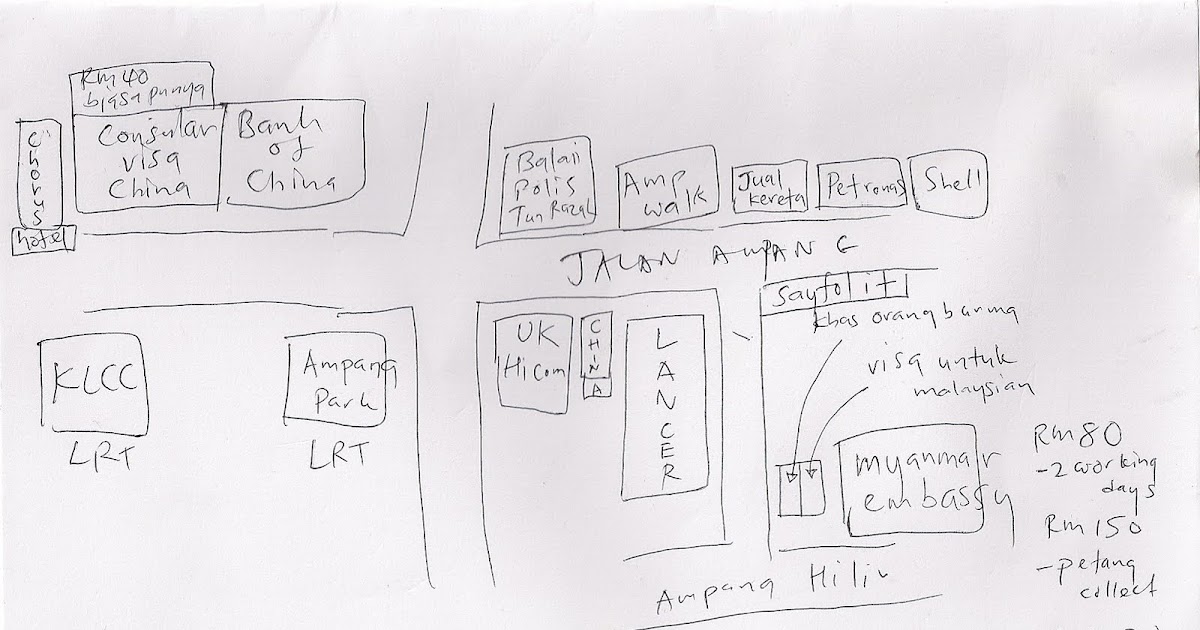 Rm 40
biasa punya
Consular
visa
China
Bank
of
China
Chorus
hotel
Balai
Polis
Tun Razak
Amp
walk
Jual
kereta
Petronas
Shell
JALAN AMPANG
KLCC
LRT
Ampang
Park
LRT
UK
Hicom
CHINA
LANCER
Sayfolit
khas orang barma
visa untuk
malaysian
myanmar
embassy
Rm 80
- 2 working
days
Rm 150
- petang
collect
Ampang Hilir